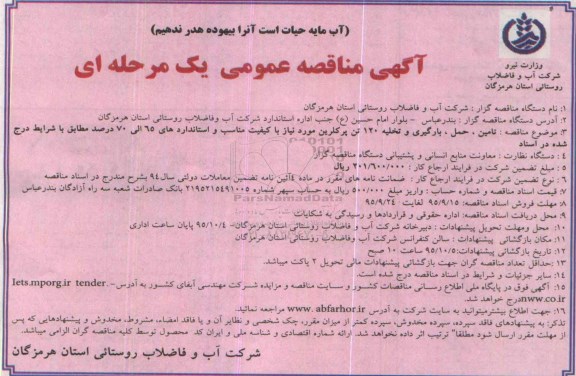 (آب مایه حیات است آنرا بیهوده هدر ندهیم)
آگهی مناقصه عمومی یک مرحله ای
وزارت نیرو
شرکت آب و فاضلاب
روستائی استان هرمزگان
۱: نام دستگاه مناقصه گزار : شرکت آب و فاضلاب روستائی استان هرمزگان
۲: آدرس دستگاه مناقصه گزار : بندرعباس - بلوار امام حسین (ع) جنب اداره استاندارد شرکت آب وفاضلاب روستائی استان هرمزگان
۳: موضوع مناقصه : تامین ، حمل ، بارگیری و تخلیه ۱۲۰ تن پرکلرین مورد نیاز با کیفیت مناسب و استاندارد های ۶۵ الی ۷۰ درصد مطابق با شرایط درج
شده در اسناد
۴ : دستگاه نظارت : معاونت منابع انسانی و پشتیبانی دستگاه مناقصه گزار
۵ : مبلغ تضمین شرکت در فرایند ارجاع کار : ۲۰۱/۶۰۰/۰۰۰ ریال
۶ : نوع تضمین شرکت در فرایند ارجاع کار : ضمانت نامه های مقرر در ماده ۴آئین نامه تضمین معاملات دولتی سال۹۴ بشرح مندرج در اسناد مناقصه
۷: قیمت اسناد مناقصه و شماره حساب : واریز مبلغ ۵۰۰/۰۰۰ ریال به حساب سپهر شماره ۲۱۹۵۲۱۵۴۹۱۰۰۵ بانک صادرات شعبه سه راه آزادگان بندرعباس
۸: مهلت فروش اسناد مناقصه: ۹۵/۹/۱۵ لغایت ۹۵/۹/۲۴
۹: محل دریافت اسناد مناقصه: اداره حقوقی و قراردادها و رسیدگی به شکایات
۱۰: محل ومهلت تحویل پیشنهادات : دبیرخانه شرکت آب وفاضلاب روستائی استان هرمزگان- ۹۵/۱۰/۴ پایان ساعت اداری
۱۱: مکان بازگشائی پیشنهادات : سالن کنفرانس شرکت آب وفاضلاب روستائی استان هرمزگان
۱۲: تاریخ بازگشائی پیشنهادات:۹۵/۱۰/۵ ساعت ۱۰ صبح
۱۳ :حداقل تعداد مناقصه گران جهت بازگشائی پیشنهادات مالی تحویل ۲ پاکت میباشد.
۱۴: سایر جزئیات و شرایط در اسناد مناقصه درج شده است.
۱۵: آگهی فوق در پایگاه ملی اطلاع رسانی مناقصات کشور و سایت مناقصه و مزایده شرکت مهندسی آبفای کشور به آدرس- iets.mporg.ir tender.
nww.co.irدرج خواهد شد.
۱۶: جهت اطلاع بیشترمیتوانید به سایت شرکت به آدرس www. abfarhor.ir مراجعه نمائید.
تذکر: به پیشنهادهای فاقد سپرده، سپرده مخدوش، سپرده کمتر از میزان مقرر، چک شخصی و نظایر آن و یا فاقد امضاء، مشروط، مخدوش و پیشنهادهایی که پس
از مهلت مقرر ارسال شود مطلقاً" ترتیب اثر داده نخواهد شد. ارائه شماره اقتصادی و شناسه ملی و ایران کد محصول توسط کلیه مناقصه گران الزامی میباشد.
شرکت آب و فاضلاب روستائی استان هرمزگان